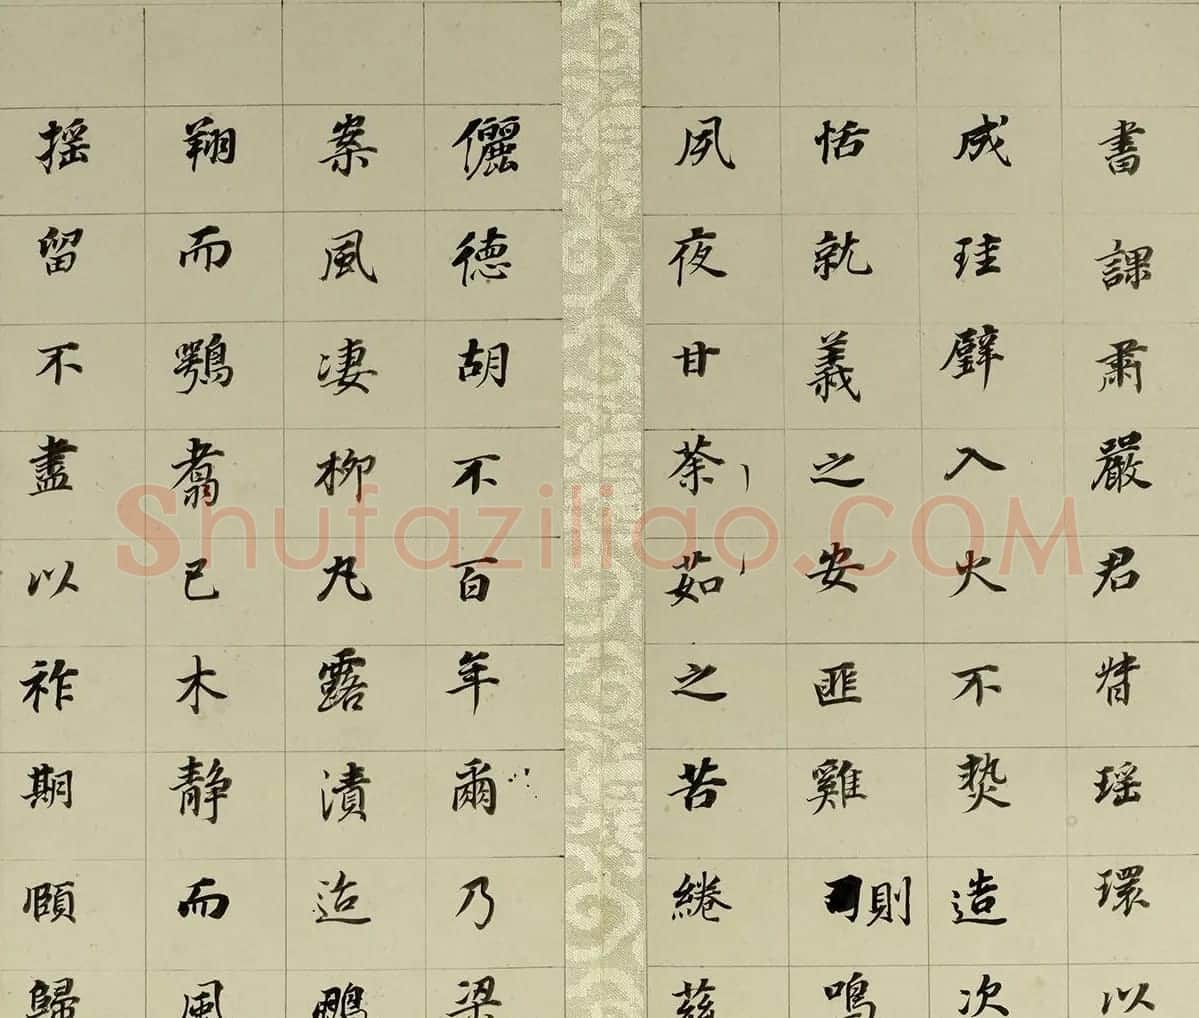 書課肅嚴君眘瑶環以
成珪璧入火不爇造次
恬就義之安匪雞則鳴
夙夜甘荼茹之苦綣茲
儷德胡不百年爾乃梁
案風凄柳丸露漬迨鵬
翔而鶚翥已木静而風
摇留不盡以祚期頤歸
Shufaziliao.COM